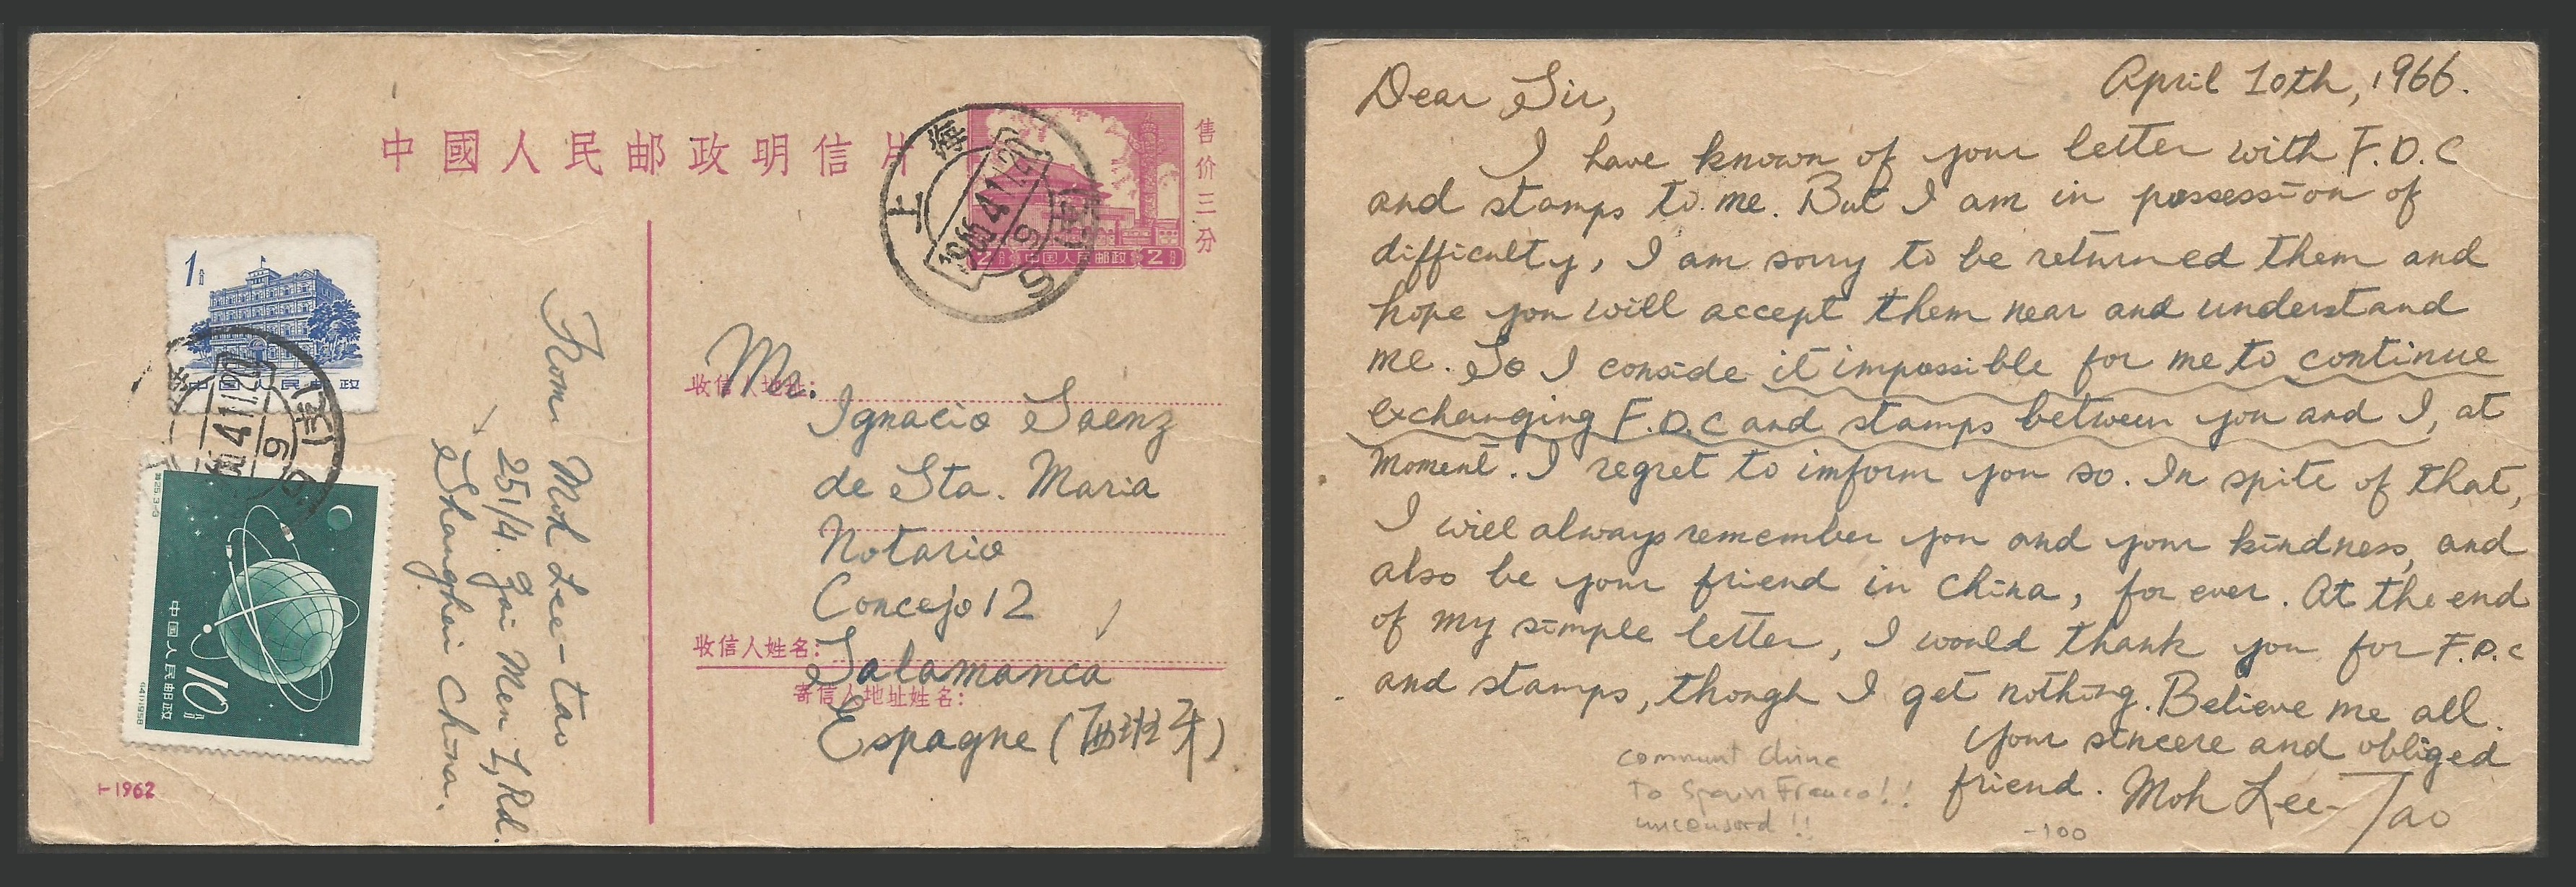 中國人民邮政明信片
售价三分
2分 中国人民邮政 2分
上海
1966.4.11.20
1分
中国人民邮政
特25.3-3
中国人民邮政
10分
(141)1958
From Moh Lee-tao
251/4. Gai Men I, Rd.
Shanghai China.
1-1962
收信人地址:
Mr.
Ignacio Saenz
de Sta. Maria
Notario
Concejo 12
收信人姓名:
Salamanca
寄信人地址姓名:
Espagne (西班牙)
April 10th, 1966.
Dear Sir,
I have known of your letter with F.D.C
and stamps to me. But I am in possession of
difficulty, I am sorry to be returned them and
hope you will accept them near and understand
me. So I conside it impossible for me to continue
exchanging F.D.C and stamps between you and I, at
moment. I regret to imform you so. In spite of that,
I will always remember you and your kindness, and
also be your friend in China, for ever. At the end
of my simple letter, I would thank you for F.D.C
and stamps, though I get nothing. Believe me all.
your sincere and obliged
friend. Moh Lee-Tao
communt China
To Spain Franco!!
uncensord!!
-100